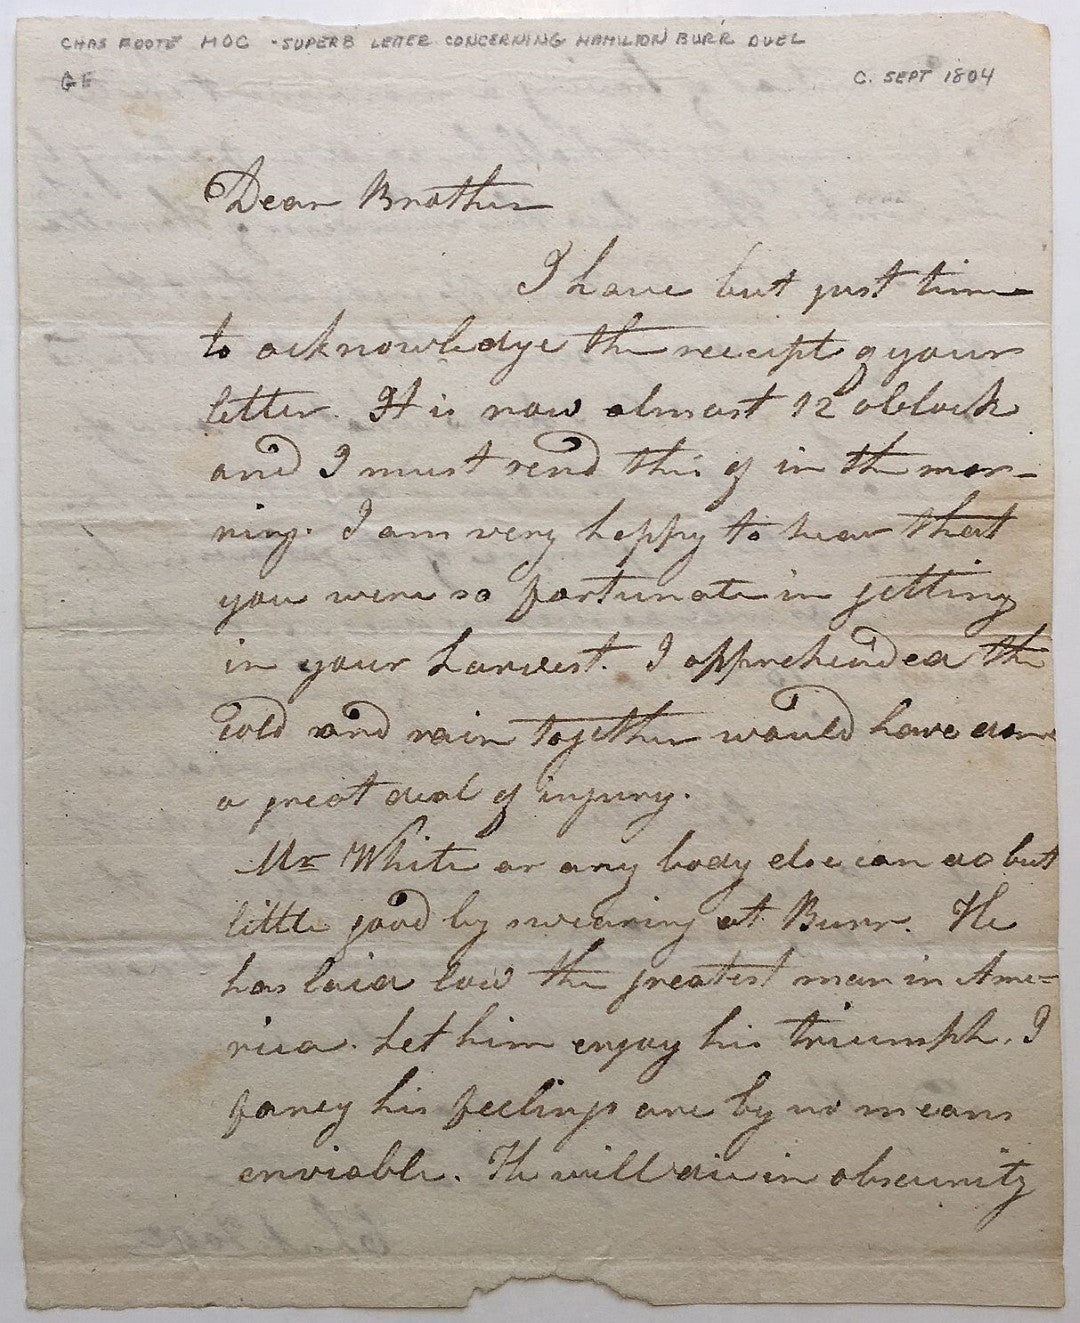 CHAS FOOTE MOC - SUPERB LETTER CONCERNING HAMILTON BURR DUEL
C. SEPT 1804
Dear Brother
I have but just time
to acknowledge the receipt of your
letter. It is now almost 12 oblock
and I must send this of in the mor-
ning. I am very happy to hear that
you were so fortunate in getting
in your harvest. I apprehended the
cold and rain together would have done
a great deal of injury.
Mr White or any body else can do but
little good by swearing at Burr. He
has laid low the greatest man in Ame-
rica. Let him enjoy his triumph. I
fancy his feelings are by no means
enviable. He will die in obscurity